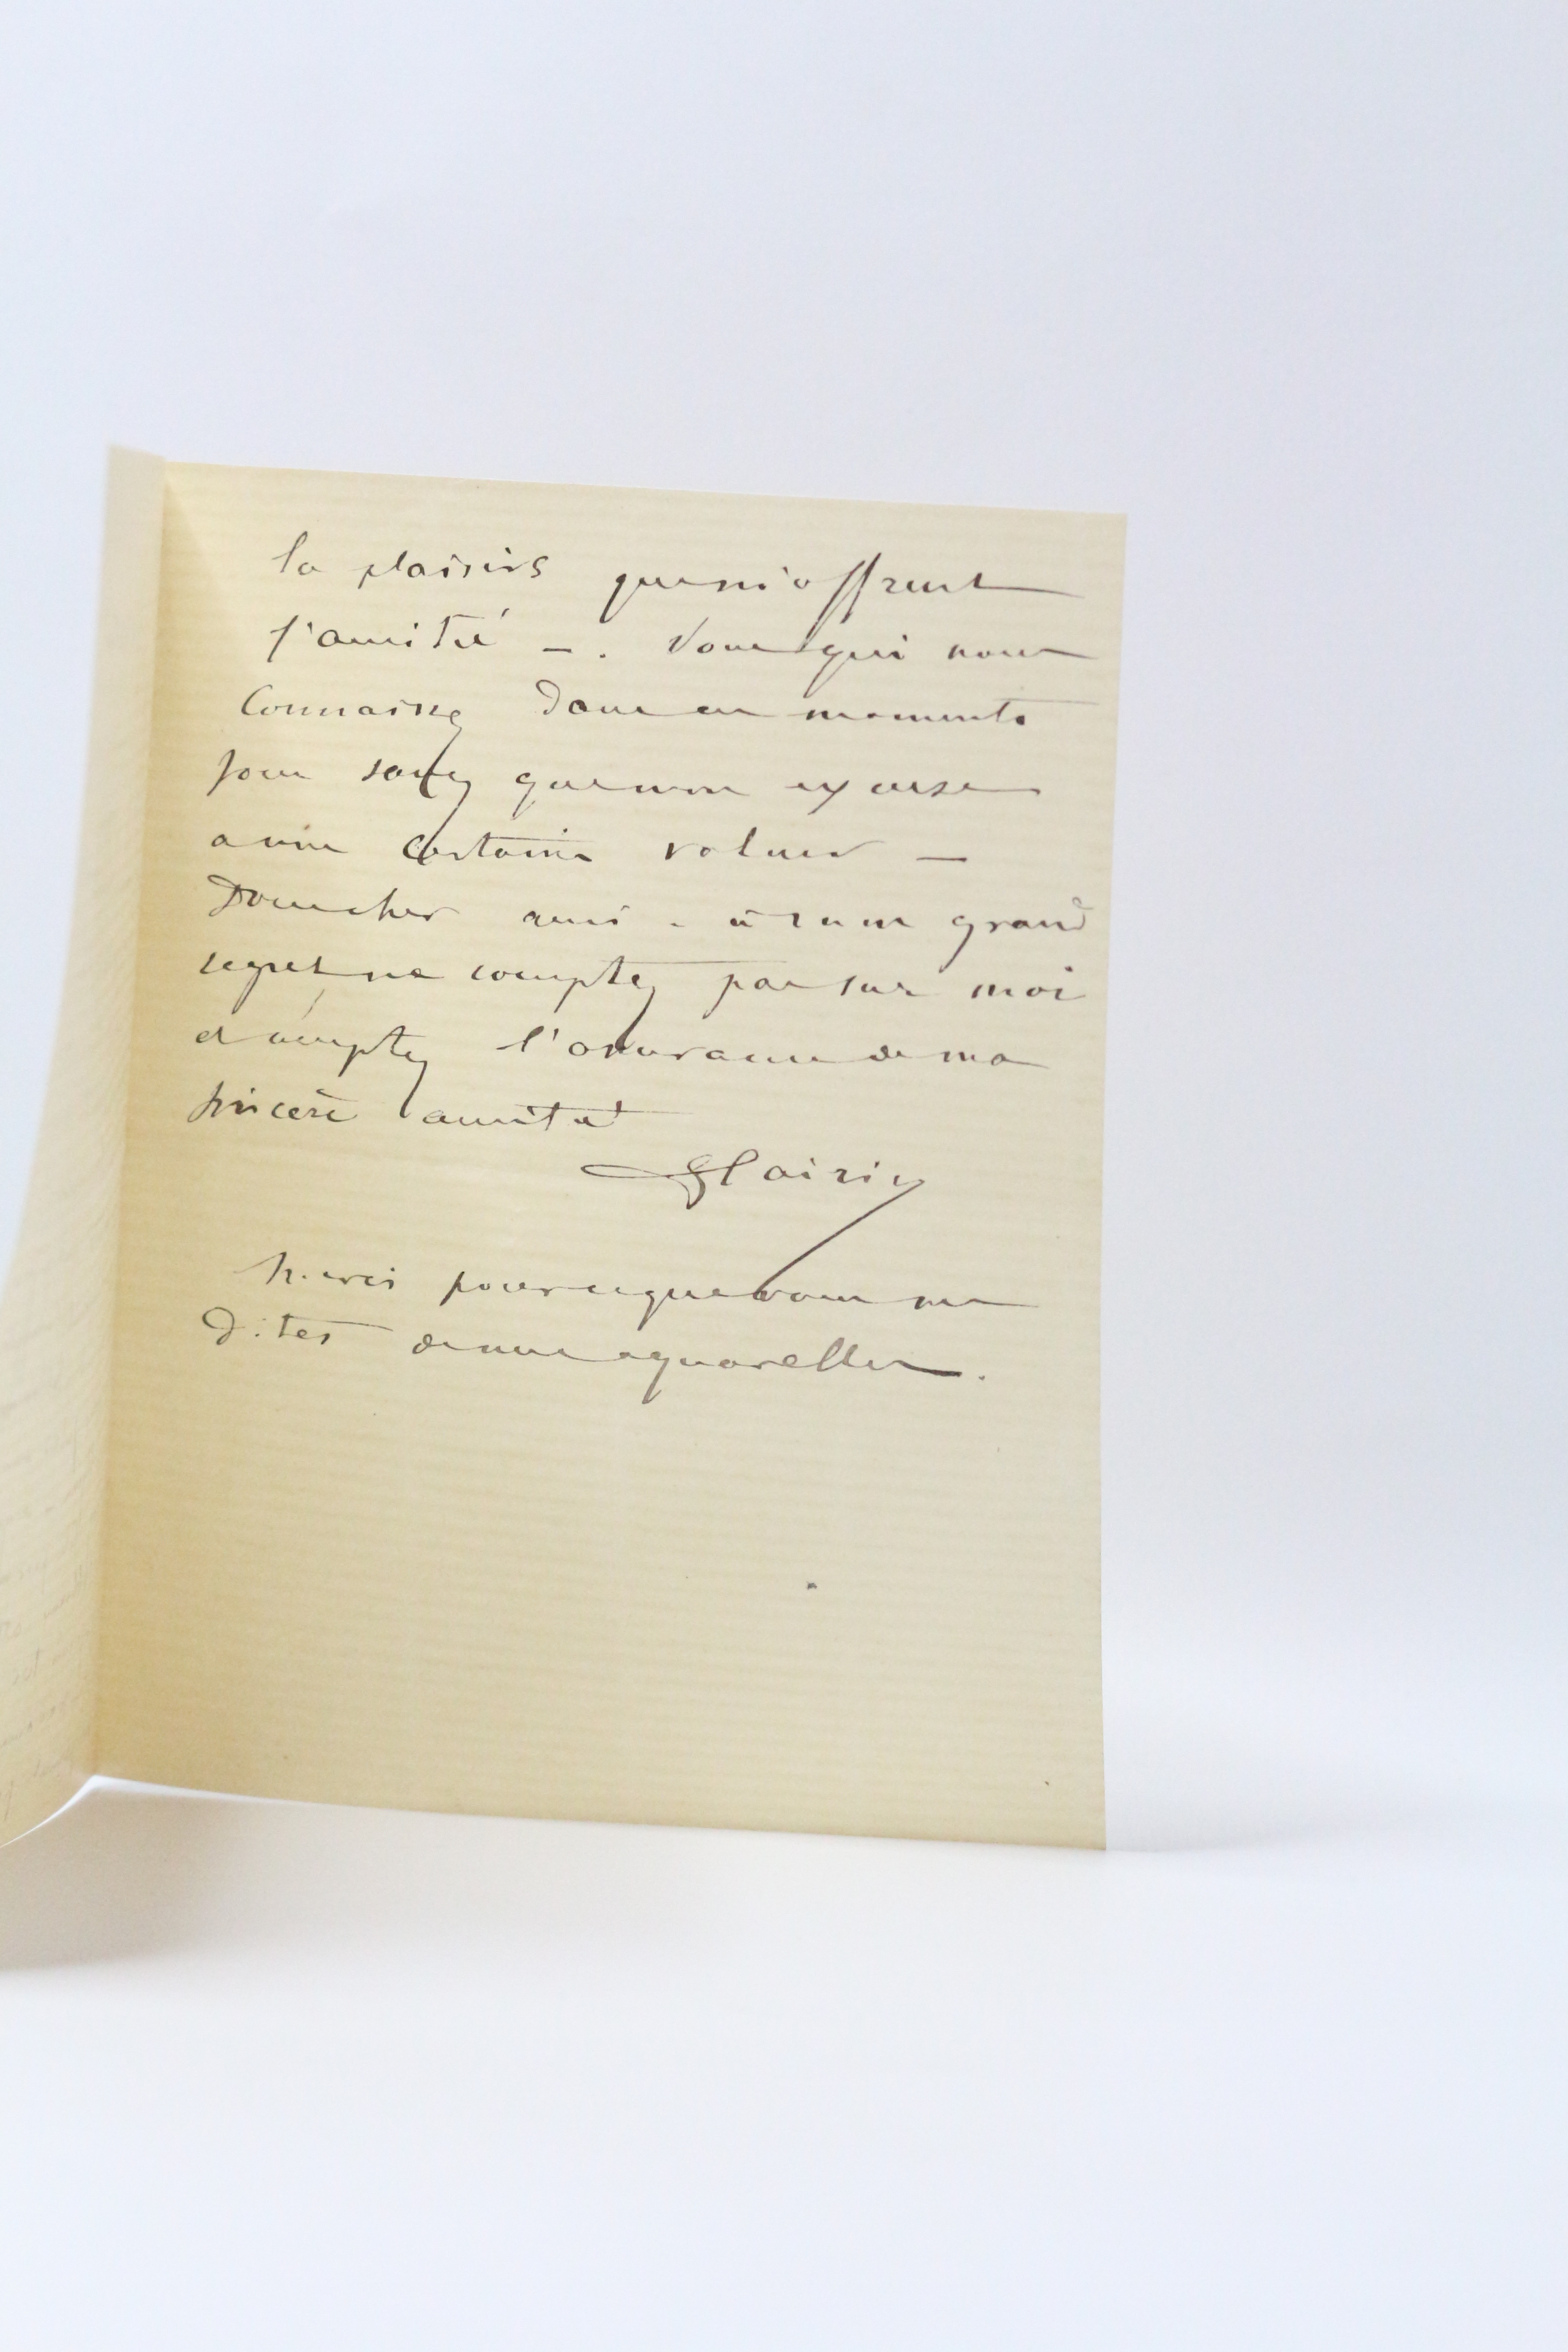 les plaisirs que m'offrent
l'amitié —. Vous qui nous
connaissez dans ces moments
vous savez que mon excuse
a une certaine valeur —
Donc cher ami - à mon grand
regret ne comptez pas sur moi
et acceptez l'assurance de ma
sincère amitié
GClairin
Merci pour ce que vous me
dites de mes aquarelles.